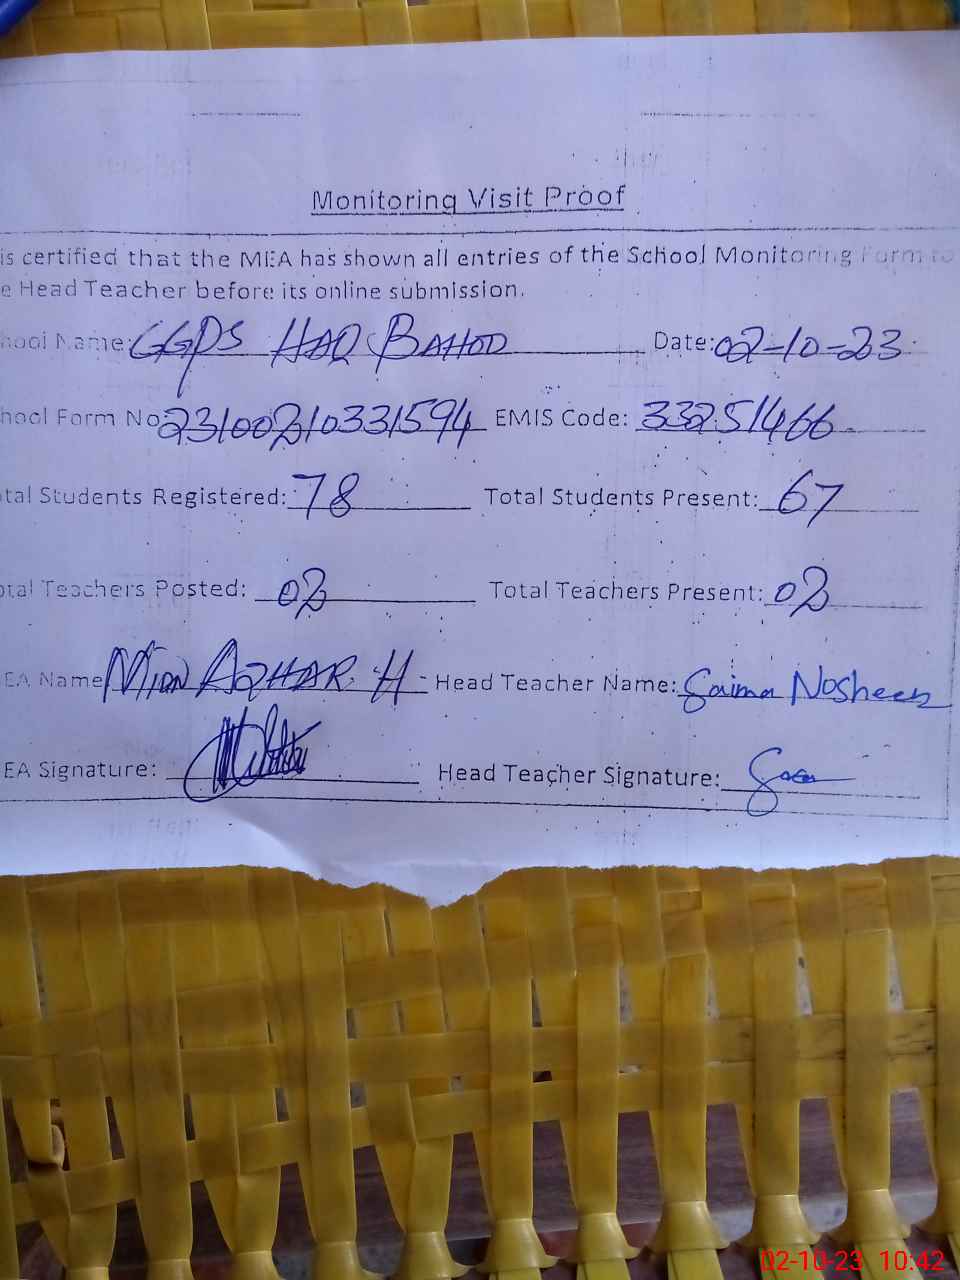 Monitoring Visit Proof
is certified that the MEA has shown all entries of the School Monitoring Form to
e Head Teacher before its online submission.
hool Name: GGPS HAQ BAHOO Date: 02-10-23
hool Form No 23100210331594 EMIS Code: 33251466
tal Students Registered: 78 Total Students Present: 67
otal Teachers Posted: 02 Total Teachers Present: 02
EA Name MIAN AZHAR. H Head Teacher Name: Saima Nosheen
EA Signature: Head Teacher Signature:
02-10-23 10:42